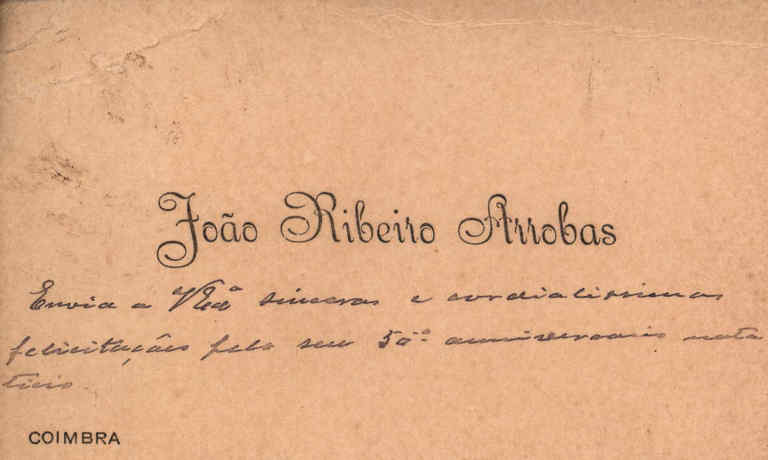 João Ribeiro Arrobas
Envia a V Exª sinceras e cordialissimas
felicitações pelo seu 50º anniversario nata
licio.
COIMBRA